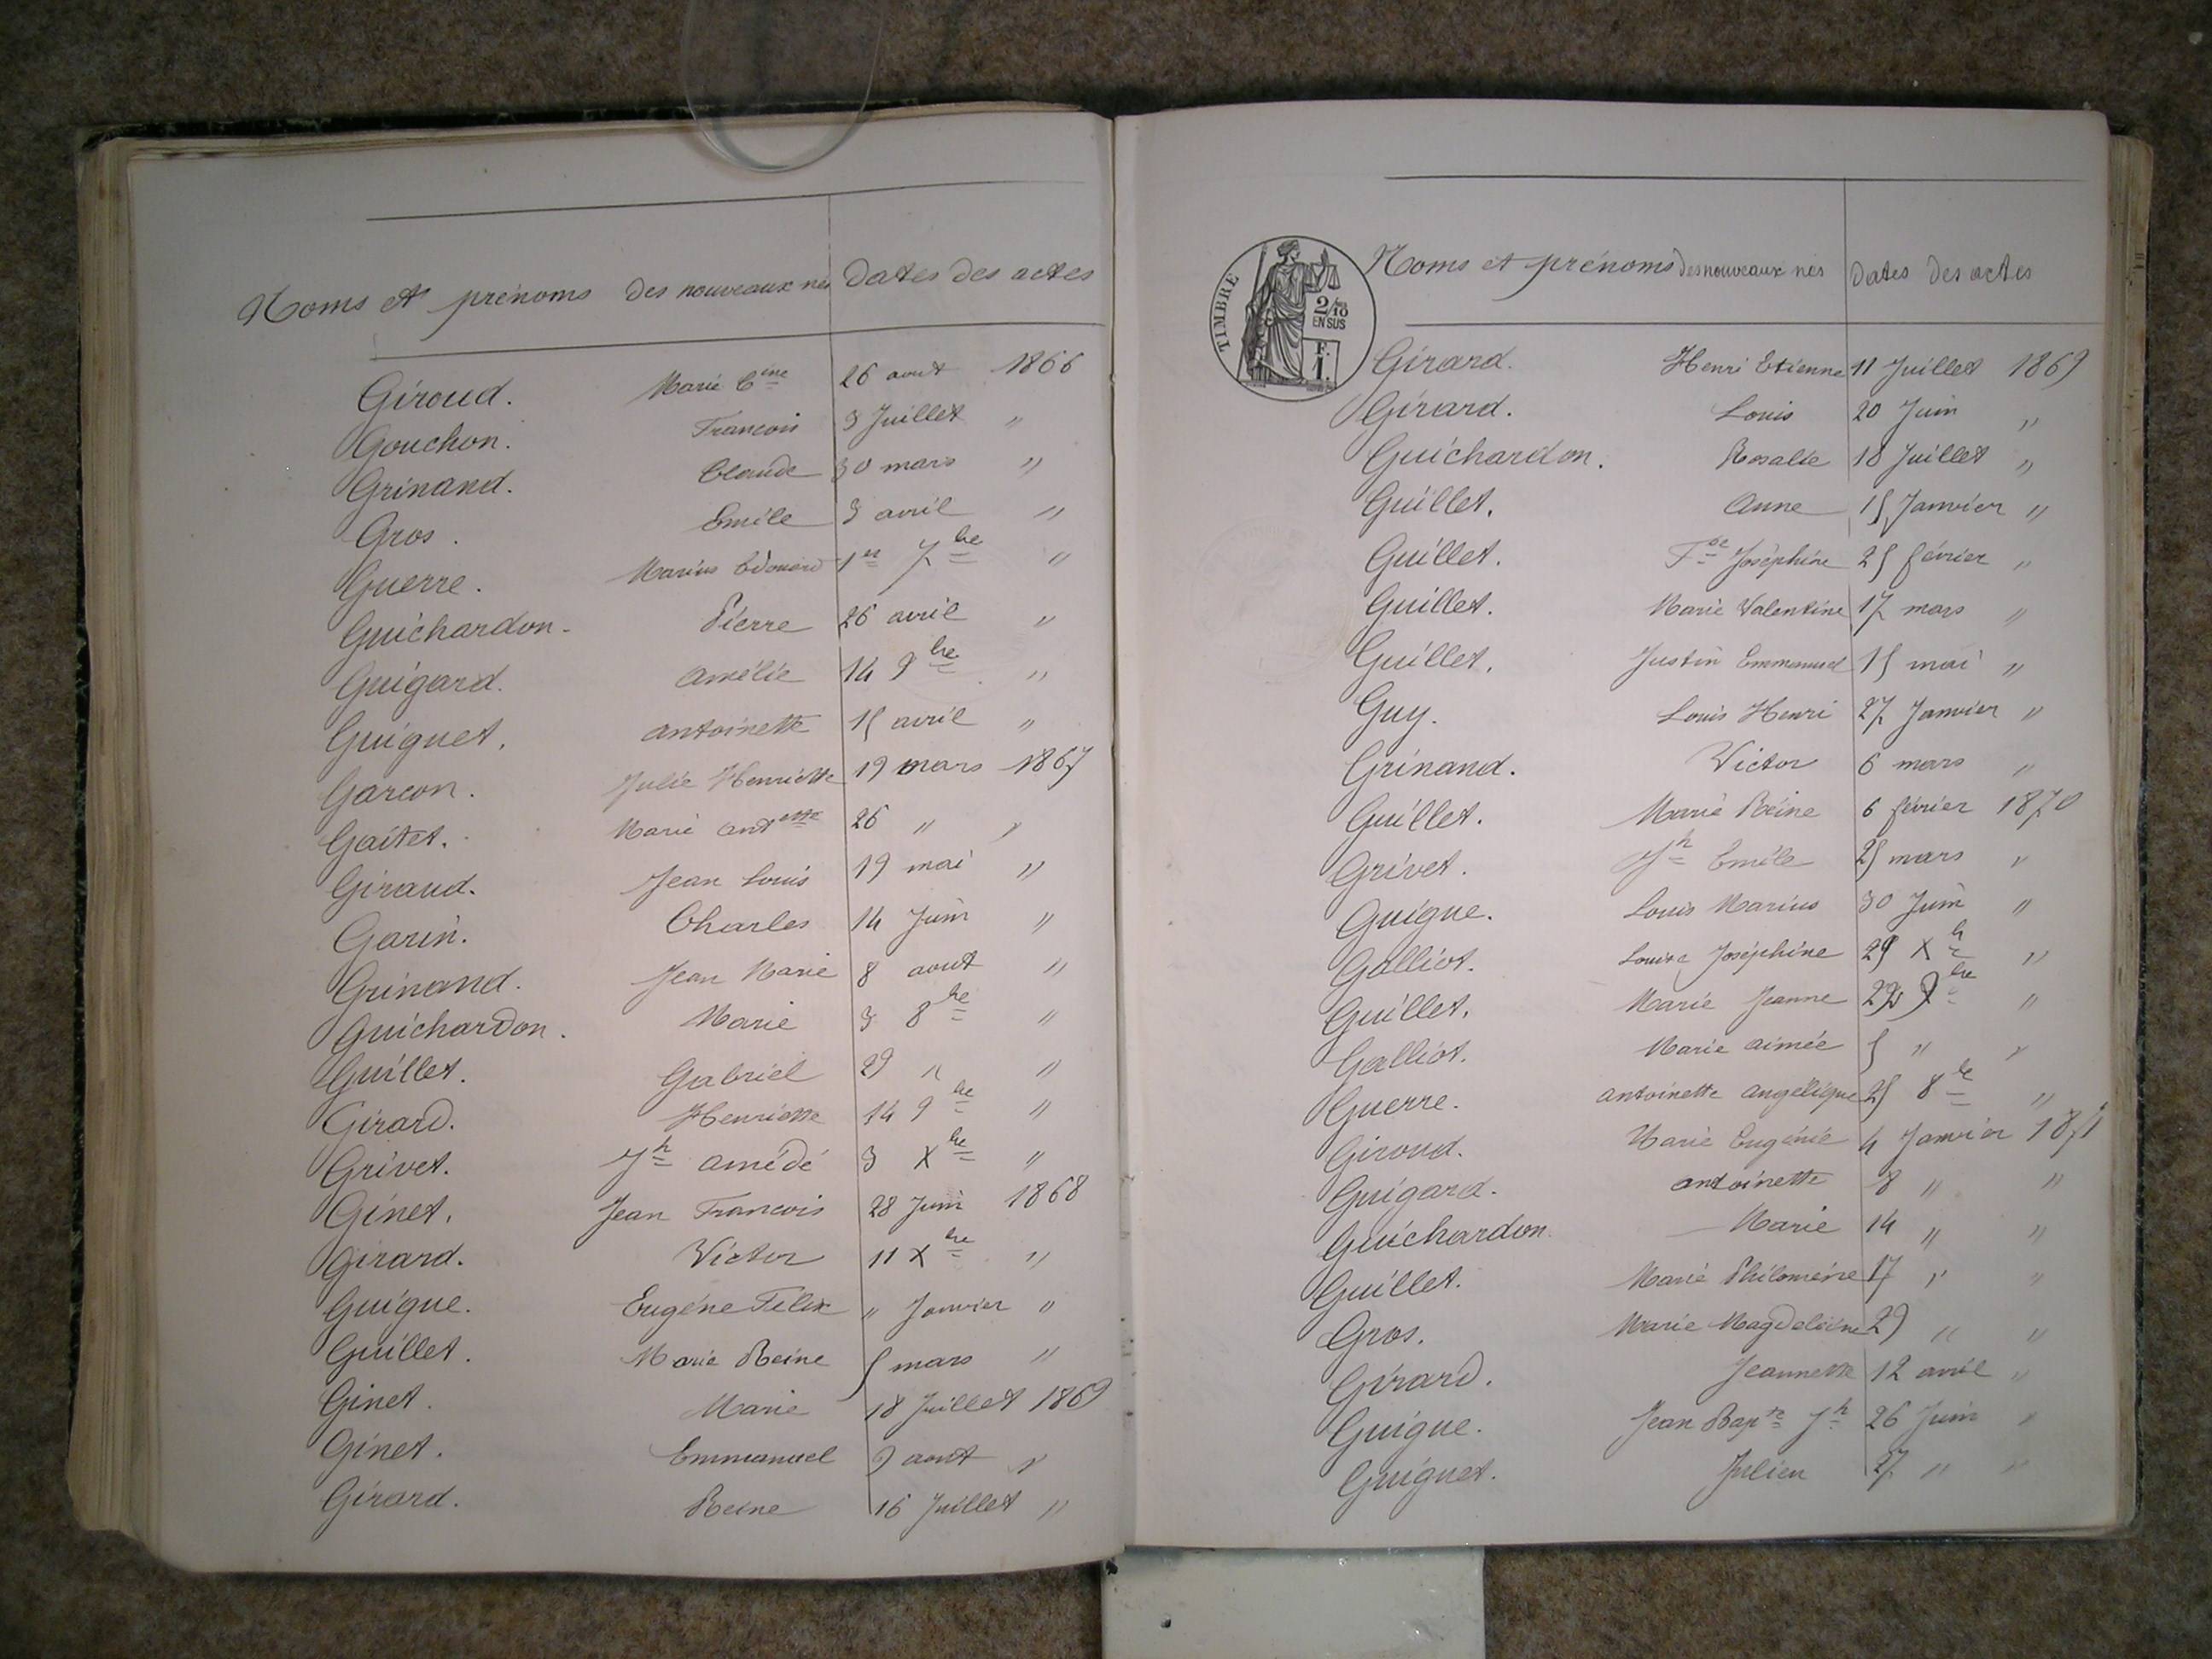 Noms et prénoms des nouveaux nés Dates des actes
Giroud. Marie Cine 26 aout 1866
Gouchon. Francois 3 Juillet "
Grinand. Claude 30 mars "
Gros. Emile 3 avril "
Guerre. Marius Edouard 1er 7bre "
Guichardon. Pierre 26 avril "
Guigard. Amélie 14 9bre "
Guiguet. Antoinette 15 avril "
Garcon. Julie Henriette 19 mars 1867
Gaitet. Marie Antette 26 " "
Giraud. Jean Louis 19 mai "
Garin. Charles 14 Juin "
Grinand. Jean Marie 8 aout "
Guichardon. Marie 3 8bre "
Guillet. Gabriel 29 " "
Girard. Henriette 14 9bre "
Grivet. Jh Amédé 3 Xbre "
Ginet. Jean Francois 28 Juin 1868
Girard. Victor 11 Xbre "
Guigue. Eugéne Félix " Janvier "
Guillet. Marie Reine 5 mars "
Ginet. Marie 18 Juillet 1869
Ginet. Emmanuel 9 aout "
Girard. Reine 16 Juillet "
TIMBRE
2/10
EN SUS
F.
1.
Noms et prénoms des nouveaux nés Dates des actes
Girard. Henri Etienne 11 Juillet 1869
Girard. Louis 20 Juin "
Guichardon. Rosalie 18 Juillet "
Guillet. Anne 15 Janvier "
Guillet. Joséphine 25 février "
Guillet. Marie Valentine 17 mars "
Guillet. Justin Emmanuel 15 mai "
Guy. Louis Henri 27 Janvier "
Grinand. Victor 6 mars "
Guillet. Marie Reine 6 février 1870
Grivet. Jh Emile 25 mars "
Guigue. Louis Marius 30 Juin "
Galliot. Louise Joséphine 25 Xbre "
Guillet. Marie Jeanne 9bre "
Galliot. Marie aimée 5 " "
Guerre. Antoinette Angélique 25 8bre "
Giroud. Marie Eugénie 4 Janvier 1871
Guigard. Antoinette 8 " "
Guichardon. Marie 14 " "
Guillet. Marie Philoméne 17 " "
Gros. Marie Magdeleine 29 " "
Girard. Jeannette 12 avril "
Guigue. Jean Bapte Jh 26 Juin "
Guiguet. Julien 27 " "